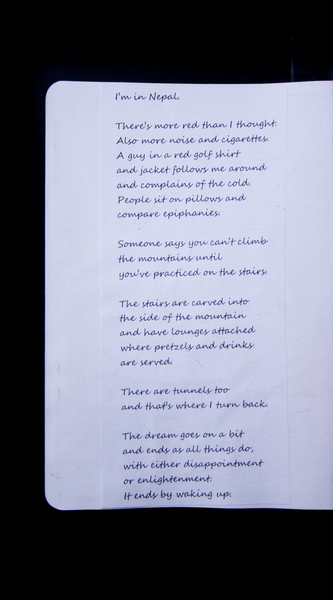 I'm in Nepal.
There's more red than I thought.
Also more noise and cigarettes.
A guy in a red golf shirt
and jacket follows me around
and complains of the cold.
People sit on pillows and
compare epiphanies.
Someone says you can't climb
the mountains until
you've practiced on the stairs.
The stairs are carved into
the side of the mountain
and have lounges attached
where pretzels and drinks
are served.
There are tunnels too
and that's where I turn back.
The dream goes on a bit
and ends as all things do,
with either disappointment
or enlightenment.
It ends by waking up.